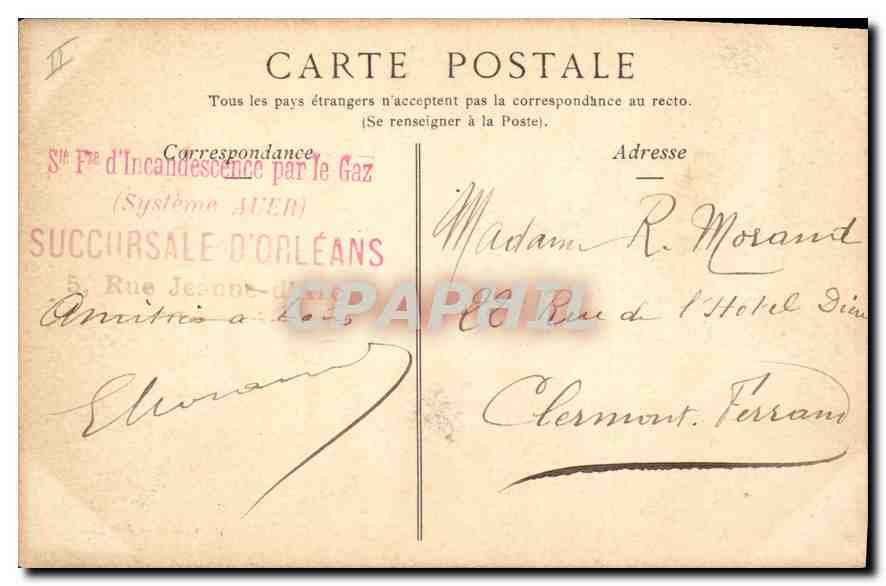 II
CARTE POSTALE
Tous les pays étrangers n'acceptent pas la correspondance au recto.
(Se renseigner à la Poste).
Correspondance
Sté Fse d'Incandescence par le Gaz
(Système AUER)
SUCCURSALE D'ORLÉANS
5, Rue Jeanne-d'Arc
Amitiés a tous
EMorand
Adresse
Madame R. Morand
Rue de l'Hotel Dieu
Clermont. Ferrand
CPAPHIL